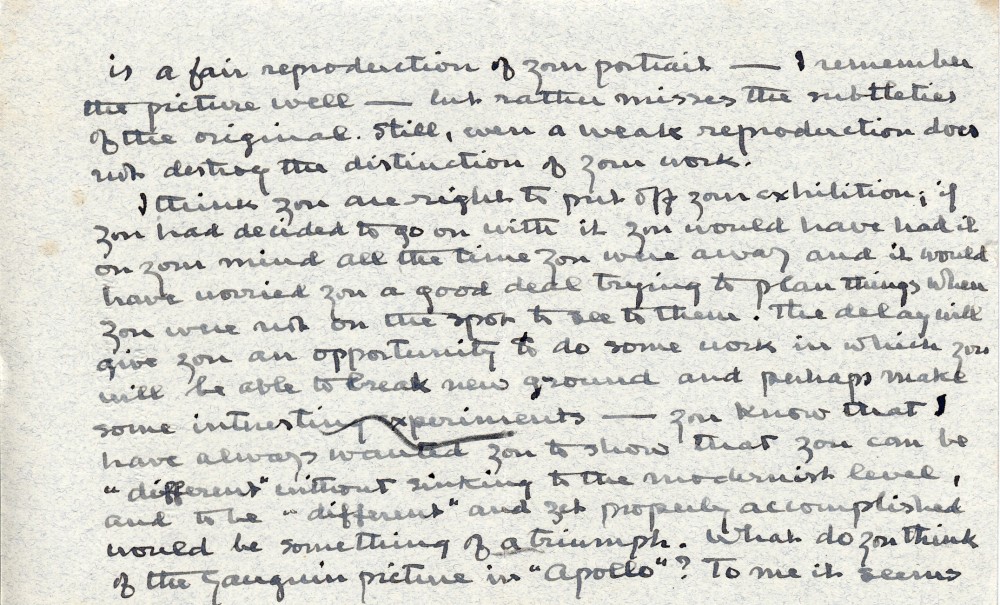 is a fair reproduction of your portrait — I remember
the picture well — but rather misses the subtleties
of the original. Still, even a weak reproduction does
not destroy the distinction of your work.
I think you are right to put off your exhibition; if
you had decided to go on with it you would have had it
on your mind all the time you were away and it would
have worried you a good deal trying to plan things when
you were not on the spot to see to them. The delay will
give you an opportunity to do some work in which you
will be able to break new ground and perhaps make
some interesting experiments — you know that I
have always wanted you to show that you can be
"different" without sinking to the modernist level,
and to be "different" and yet properly accomplished
would be something of a triumph. What do you think
of the Gauguin picture in "Apollo"? To me it seems